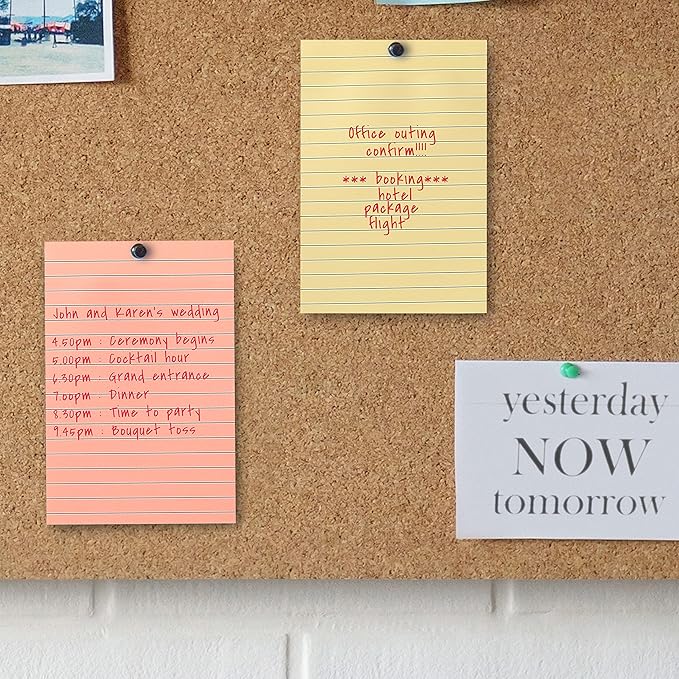 Office outing
confirm!!!!
*** booking***
hotel
package
flight
John and Karen's wedding
4.50pm : Ceremony begins
5.00pm : Cocktail hour
6.30pm : Grand entrance
7.00pm : Dinner
8.30pm : Time to party
9.45pm : Bouquet toss
yesterday
NOW
tomorrow